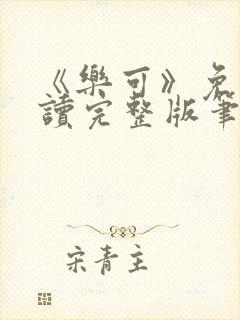 《樂可》免
讀完整版筆
宋青主